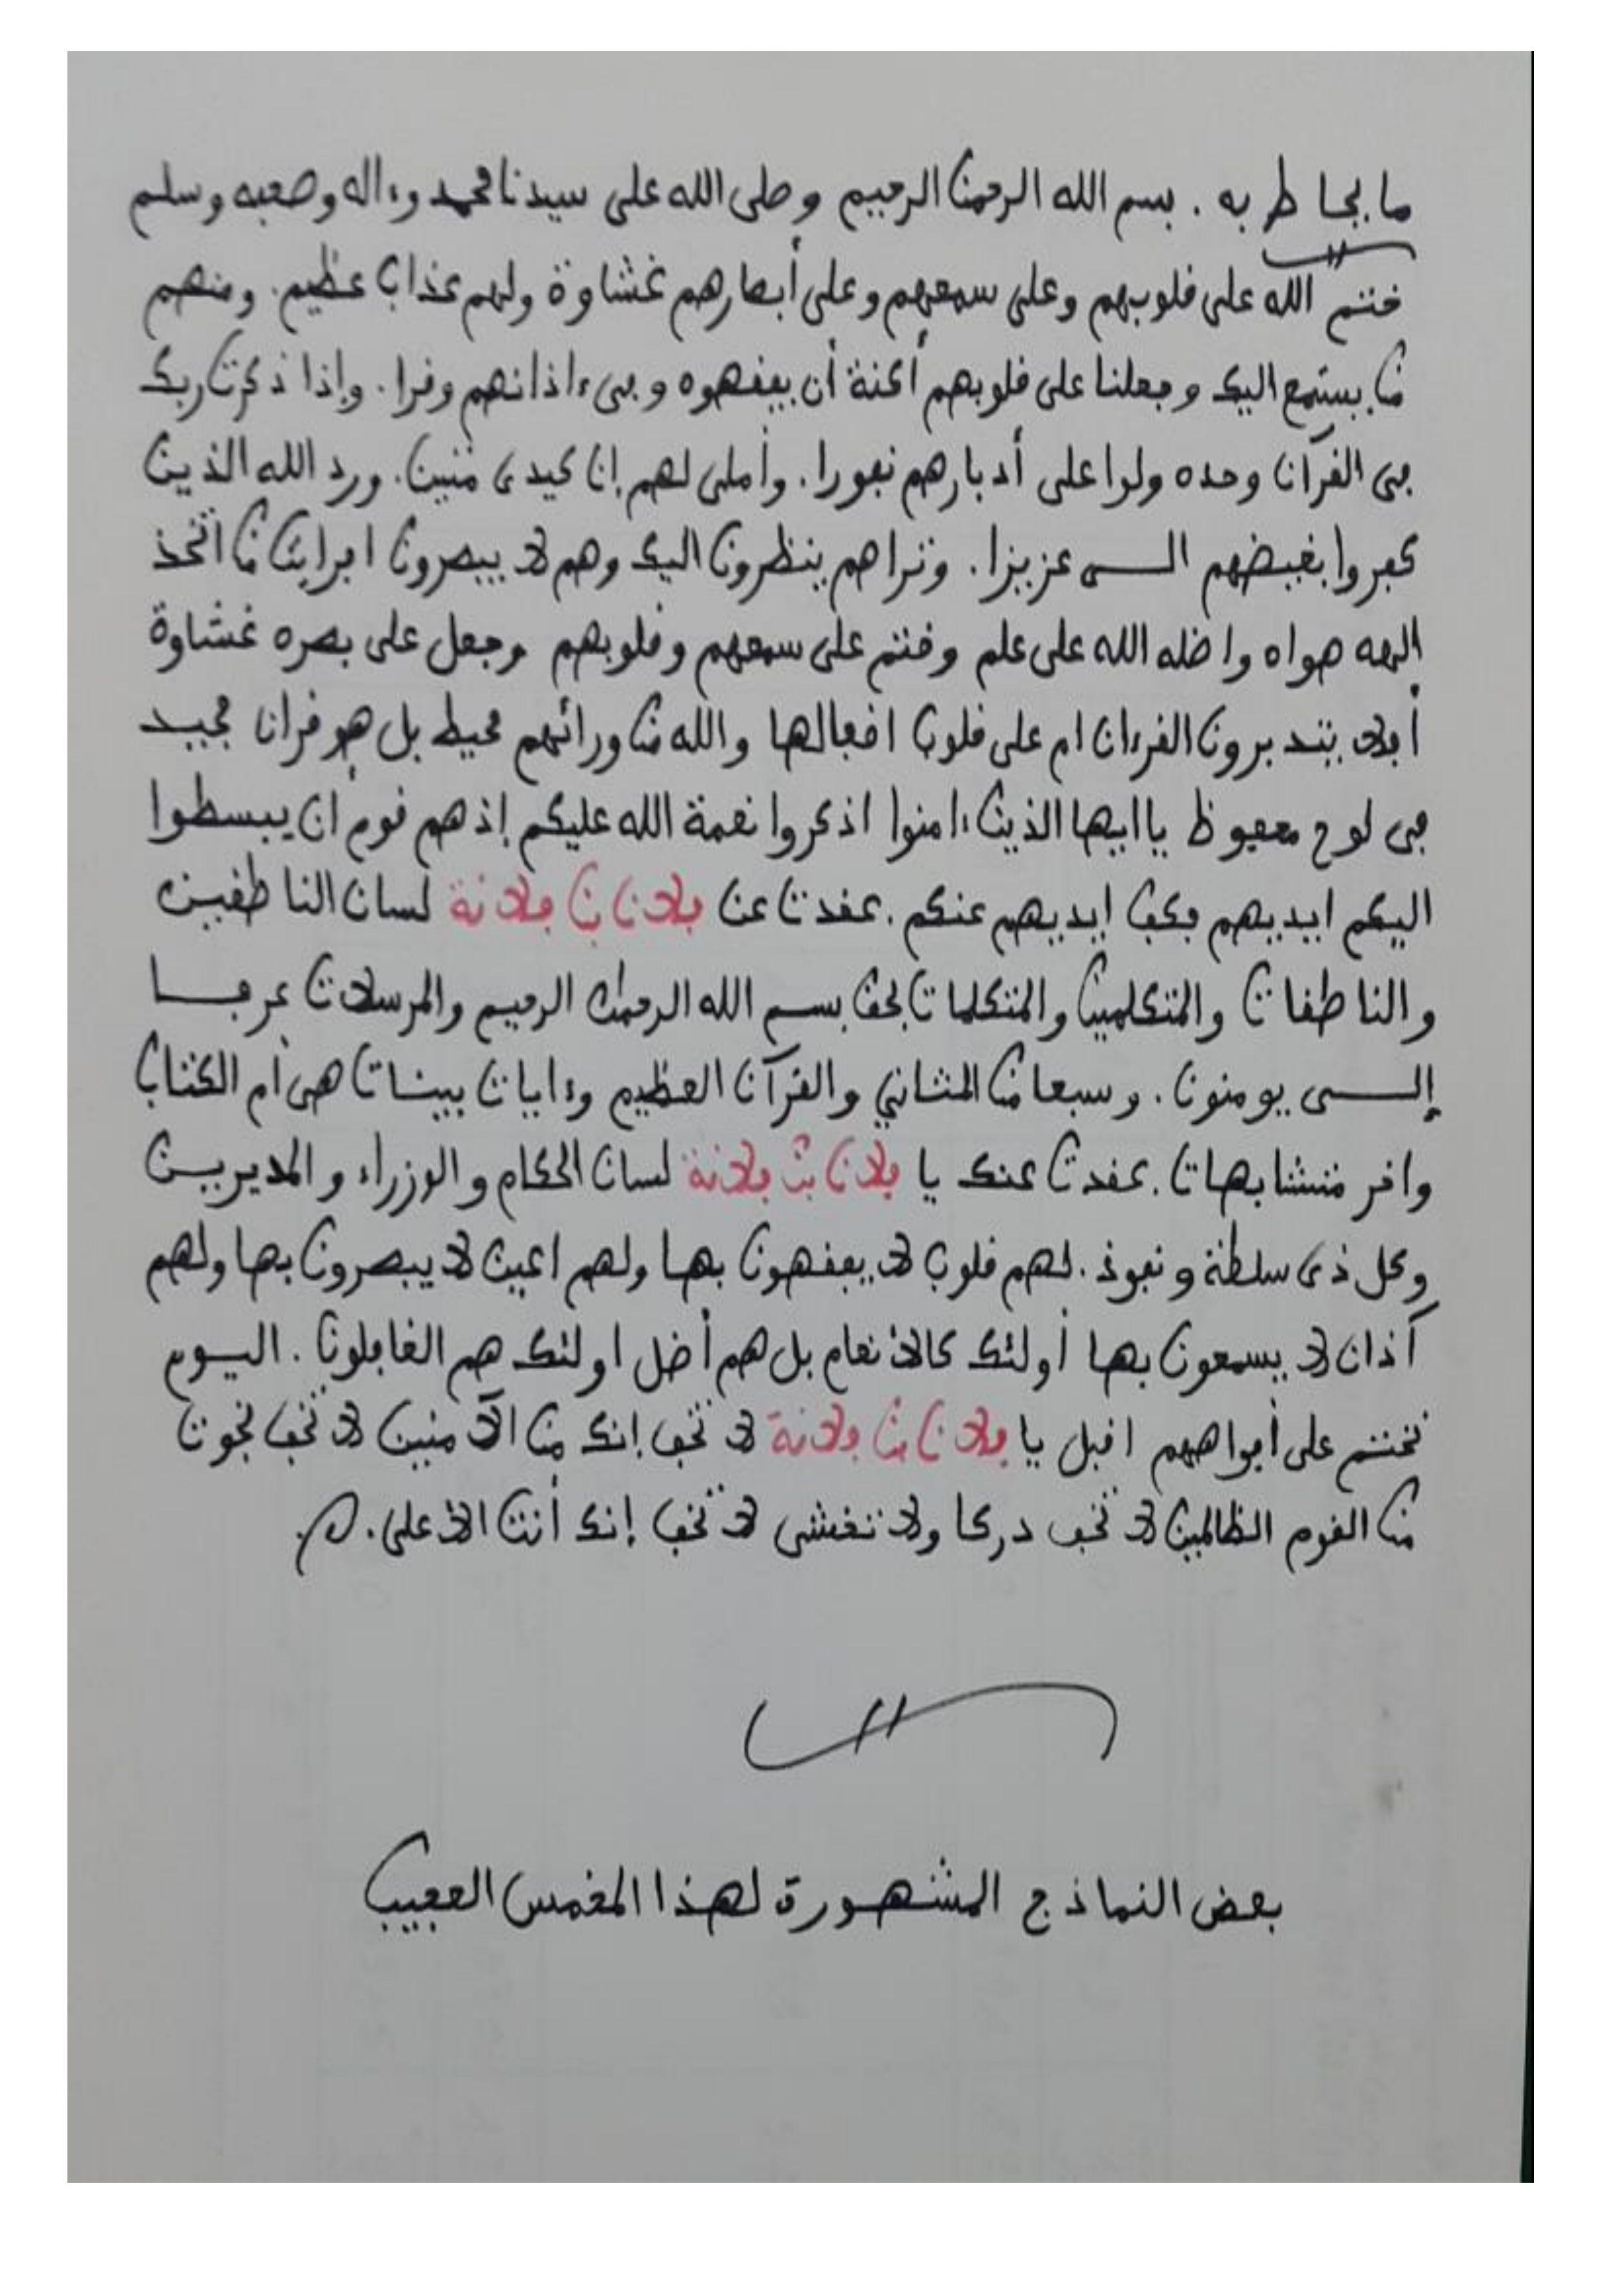 ما يخاطر به . بسم الله الرحمن الرحيم وصلى الله على سيدنا محمد وءاله وصحبه وسلم
ختم الله على قلوبهم وعلى سمعهم وعلى أبصارهم غشاوة ولهم عذاب عظيم . ومنهم
من يستمع اليك وجعلنا على قلوبهم أكنة أن يفقهوه وفي ءاذانهم وقرا . وإذا ذكرت ربك
في القرآن وحده ولوا على أدبارهم نفورا . وأملي لهم إن كيدي متين . ورد الله الذين
كفروا بغيضهم الــى عزيزا . وتراهم ينظرون اليك وهم لا يبصرون افرايت من اتخذ
الهه هواه واضله الله على علم وختم على سمعهم وقلوبهم وجعل على بصره غشاوة
أفلا يتدبرون القرءان ام على قلوب اقفالها والله من ورائهم محيط بل هو قران مجيد
في لوح محفوظ يا ايها الذين ءامنوا اذكروا نعمة الله عليكم إذ هم قوم ان يبسطوا
اليكم ايديهم فكف ايديهم عنكم . عقدت عن فلان بن فلانة لسان الناطقين
والناطقات والمتكلمين والمتكلمات بحق بسم الله الرحمن الرحيم والمرسلات عرفا
إلــى يومنون . وسبعا من المثاني والقرآن العظيم وءايات بينات هي أم الكتاب
واخر متشابهات . عقدت عنك يا فلان بن فلانة لسان الحكام والوزراء والمديرين
وكل ذي سلطة ونفوذ . لهم قلوب لا يفقهون بها ولهم اعين لا يبصرون بها ولهم
آذان لا يسمعون بها أولئك كالانعام بل هم أضل اولئك هم الغافلون . اليوم
نختم على أفواههم اقبل يا فلان بن فلانة لا تخف إنك من الآمنين لا تخف نجوت
من القوم الظالمين لا تخف دركا ولا تخشى لا تخف إنك أنت الاعلى .
بعض النماذج المشهورة لهذا المخمس العجيب